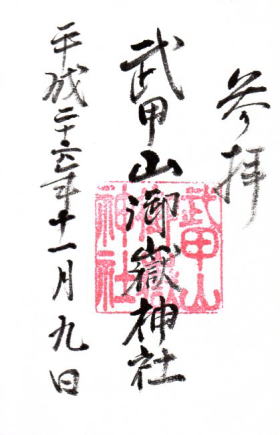 参拝
武甲山御嶽神社
平成二十六年十一月九日
武甲山
御嶽
神社